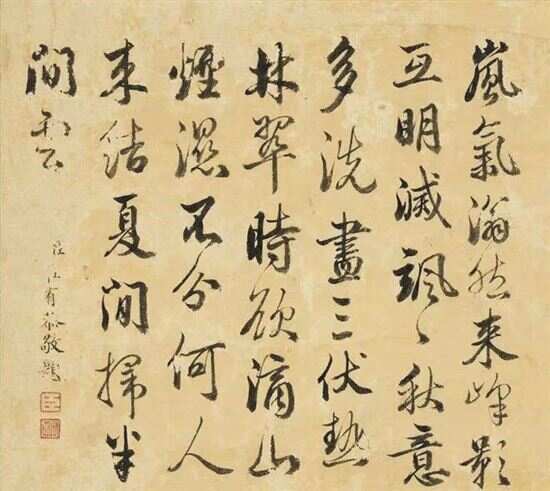 嵐氣滃然來峰影
互明滅颯〻秋意
多洗盡三伏熱
林翠時欲滴山
煙濕不分何人
來結夏閒掃半
間雲
臣莊有恭敬題